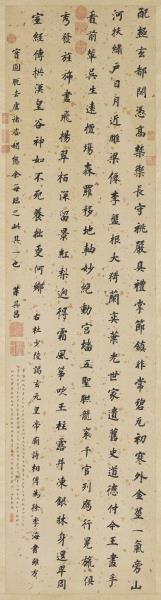 配極玄都閟憑高禁籞長守祧嚴具禮掌節鎮非常碧瓦初寒外金莖一氣旁山
河扶繡戶日月近雕梁仙李盤根大猗蘭奕葉光世家遺舊史道德付今王畫手
看前輩吳生遠擅場森羅移地軸妙絕動宮牆五聖聯龍袞千官列鴈行冕旒俱
秀發旌旆盡飛揚翠柏深留景紅梨迥得霜風箏吹玉柱露井凍銀牀身退卑周
室經傳拱漢皇谷神如不死養拙更何鄉
右杜少陵謁玄元皇帝廟詩相傳為徐季海書雖有
余每臨之此其一也 董其昌